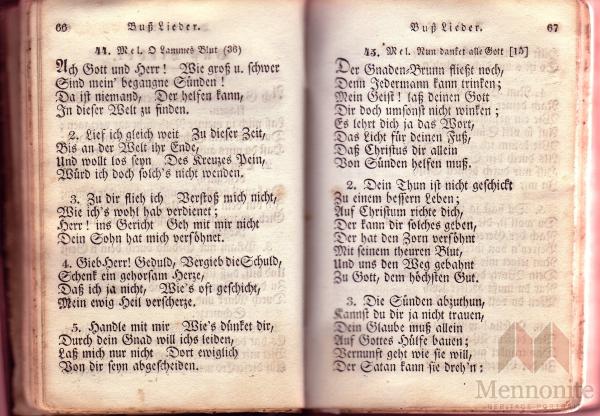 66 Buß Lieder.
44. Mel. O Lammes Blut (36)
Ach Gott und Herr! Wie groß u. schwer
Sind mein' begangne Sünden!
Da ist niemand, Der helfen kann,
In dieser Welt zu finden.
2. Lief ich gleich weit Zu dieser Zeit,
Bis an der Welt ihr Ende,
Und wollt los seyn Des Kreuzes Pein,
Würd ich doch solch's nicht wenden.
3. Zu dir flieh ich Verstoß mich nicht,
Wie ich's wohl hab verdienet;
Herr! ins Gericht Geh mit mir nicht
Dein Sohn hat mich versöhnet.
4. Gieb Herr! Geduld, Vergieb die Schuld,
Schenk ein gehorsam Herze,
Daß ich ja nicht, Wie's oft geschicht,
Mein ewig Heil verscherze.
5. Handle mit mir Wie's dünket dir,
Durch dein Gnad will ichs leiden,
Laß mich nur nicht Dort ewiglich
Von dir seyn abgescheiden.
Buß Lieder. 67
45. Mel. Nun danket alle Gott [15]
Der Gnaden-Brunn fließt noch,
Denn Jedermann kann trinken;
Mein Geist! laß deinen Gott
Dir doch umsonst nicht winken;
Es lehrt dich ja das Wort,
Das Licht für deinen Fuß,
Daß Christus dir allein
Von Sünden helfen muß.
2. Dein Thun ist nicht geschickt
Zu einem bessern Leben;
Auf Christum richte dich,
Der kann dir solches geben,
Der hat den Zorn versöhnt
Mit seinem theuren Blut,
Und uns den Weg gebahnt
Zu Gott, dem höchsten Gut.
3. Die Sünden abzuthun,
Kannst du dir ja nicht trauen,
Dein Glaube muß allein
Auf Gottes Hülfe bauen;
Vernunft geht wie sie will,
Der Satan kann sie dreh'n;
Mennonite
HERITAGE PORTRAIT